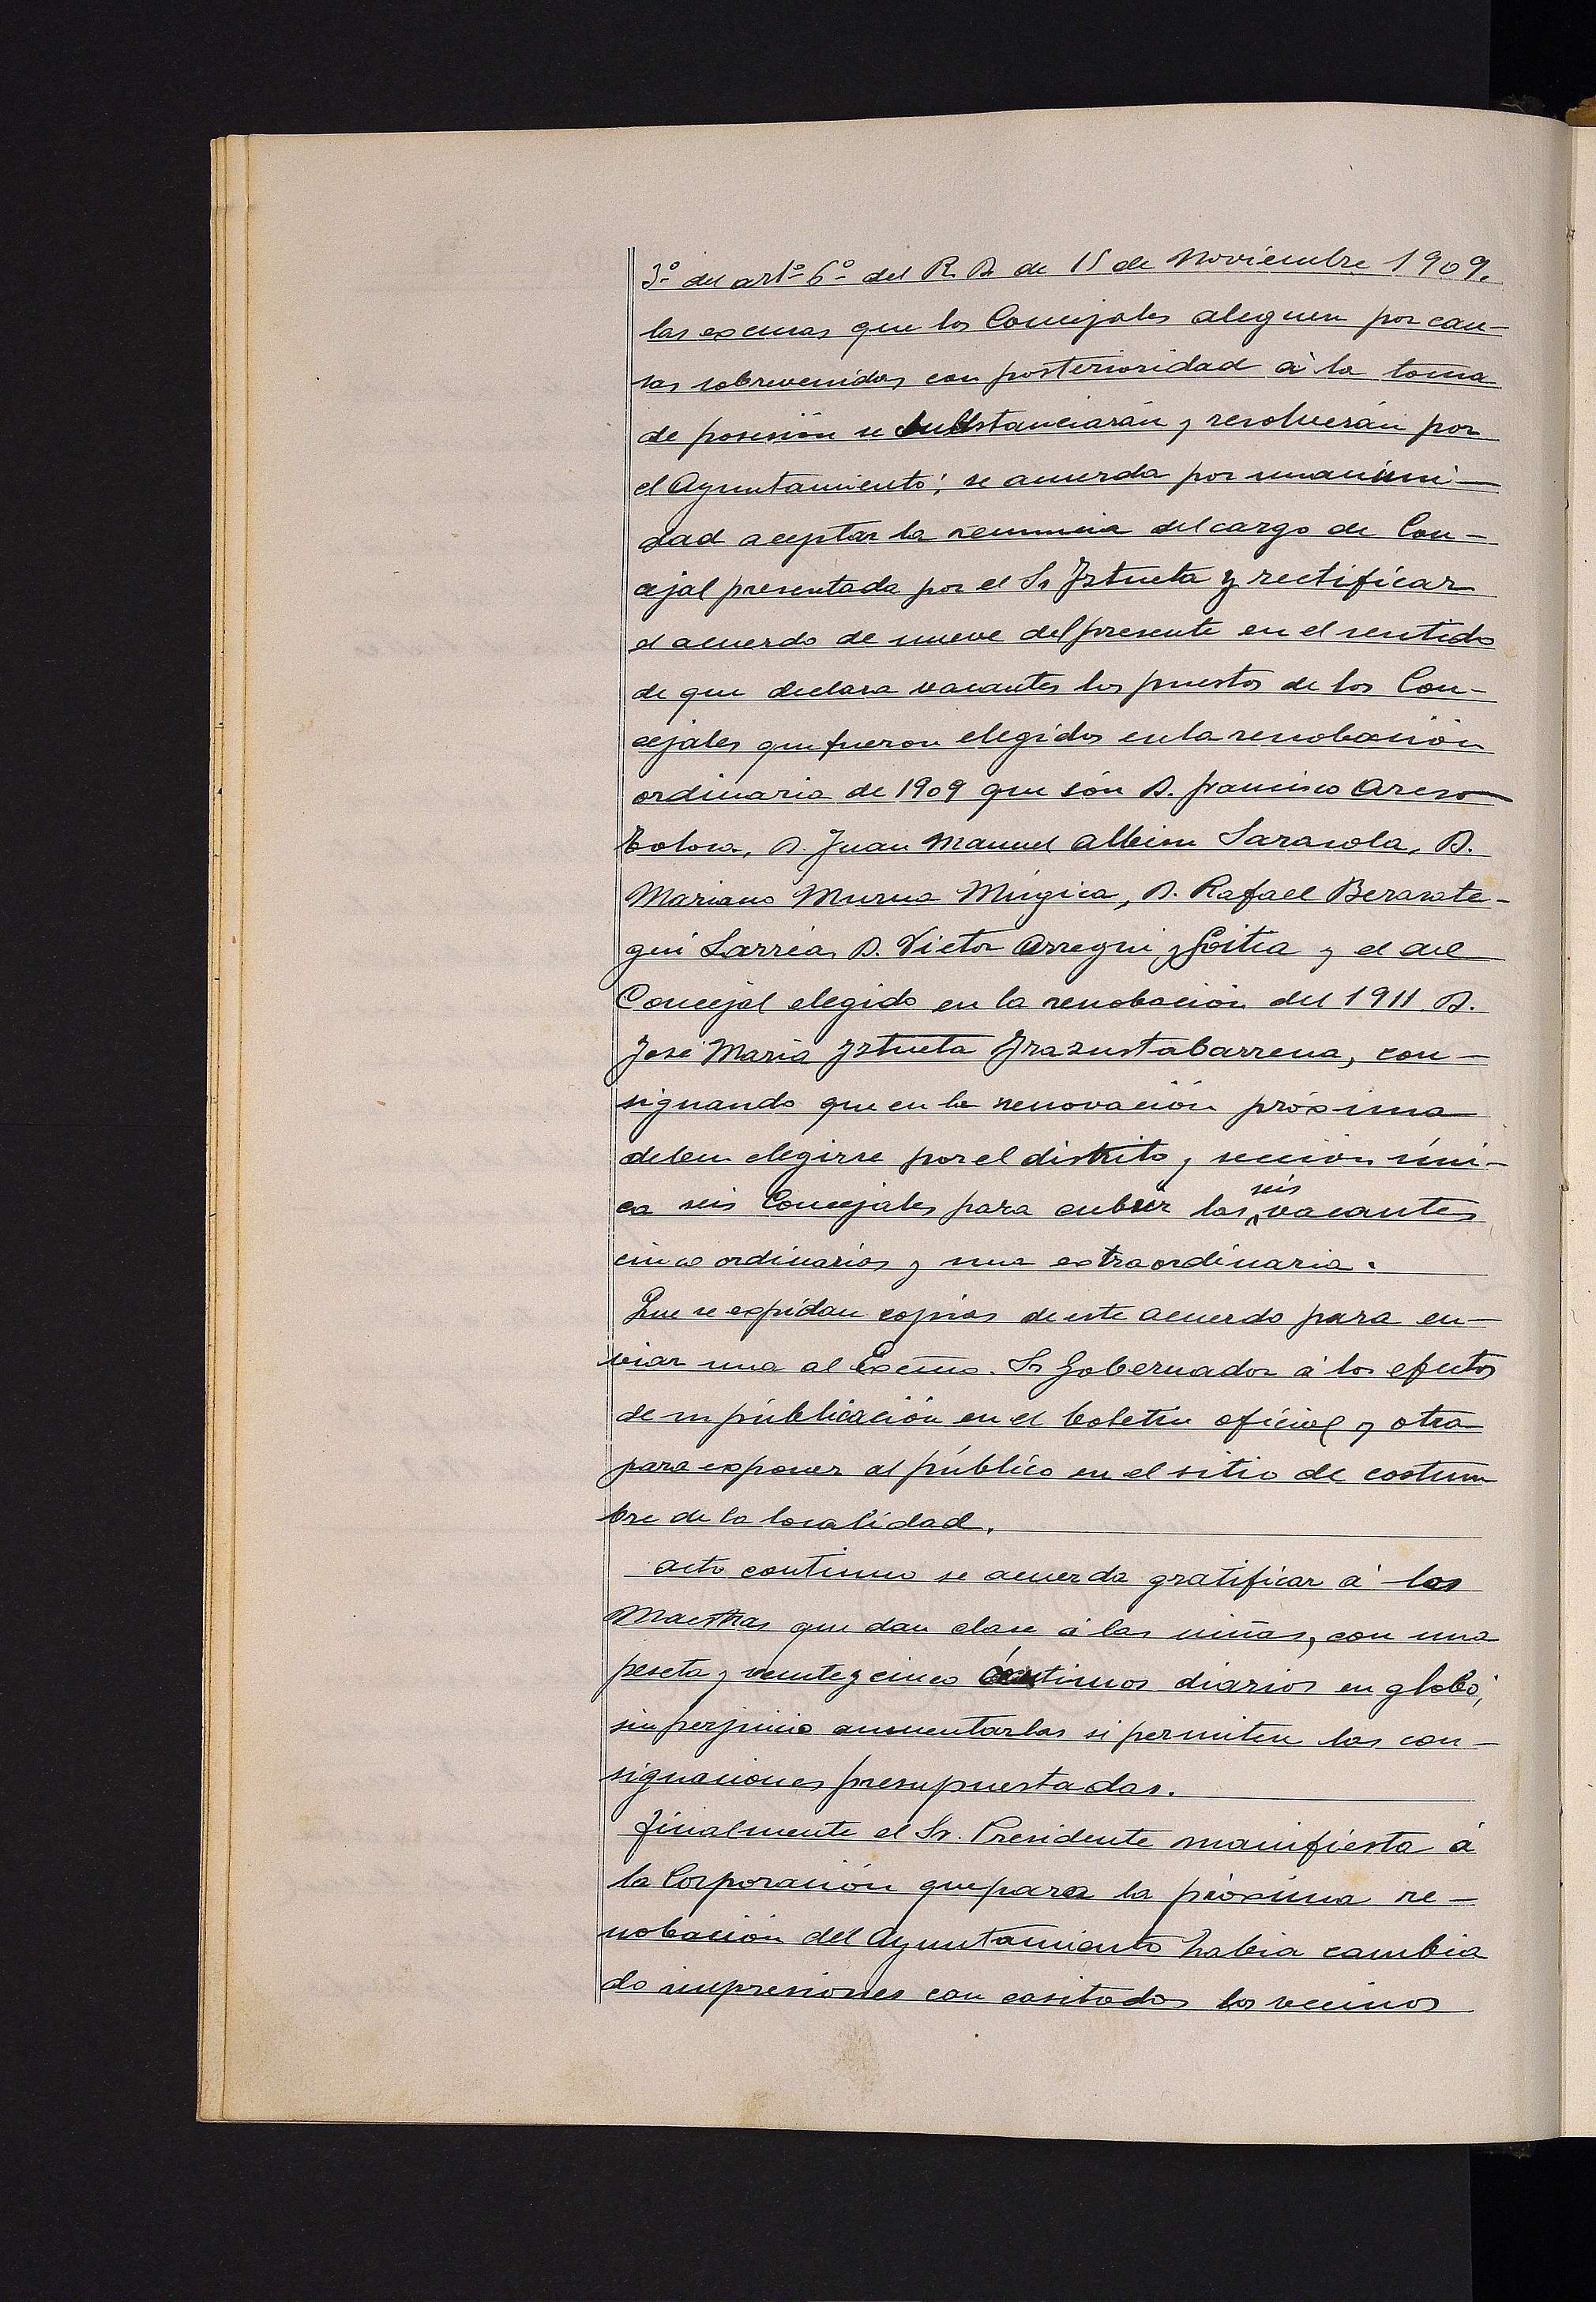 3º del artº 6º del R. D. de 15 de Noviembre 1909.
las excusas que los Concejales aleguen por cau-
sas sobrevenidas con posterioridad á la toma
de posesión se substanciarán y resolverán por
el Ayuntamiento; se acuerda por unanimi-
dad aceptar la renuncia del cargo de Con-
cejal presentada por el Sr Iztueta y rectificar
el acuerdo de nueve del presente en el sentido
de que declara vacantes los puestos de los Con-
cejales que fueron elegidos en la renobación
ordinaria de 1909 que són D. Francisco Areso
Tolosa, D. Juan Manuel Albisu Sarasola, D.
Mariano Murua Múgica, D. Rafael Berasate-
gui Larrea, D. Victor Arregui y Goitia y el del
Concejal elegido en la renobación del 1911 D.
José María Iztueta Irazustabarrena, con-
signando que en la renovación próxima
deben elegirse por el distrito y sección úni-
ca seis Concejales para cubrir las seis vacantes
cinco ordinarias y una extraordinaria.
Que se expidan copias de este acuerdo para en-
viar una al Excmo. Sr Gobernador á los efectos
de su públicación en el boletin oficial y otra
para exponer al público en el sitio de costum
bre de la localidad.
Acto continuo se acuerda gratificar á las
Maestras que dan clase á las niñas, con una
peseta y veinte y cinco céntimos diarios en globo,
sin perjuicio aumentarlas si permiten las con-
signaciones presupuestadas.
Finalmente el Sr. Presidente manifiesta á
la Corporación que para la próxima re-
nobación del Ayuntamiento habia cambia
do impresiones con casi todos los vecinos